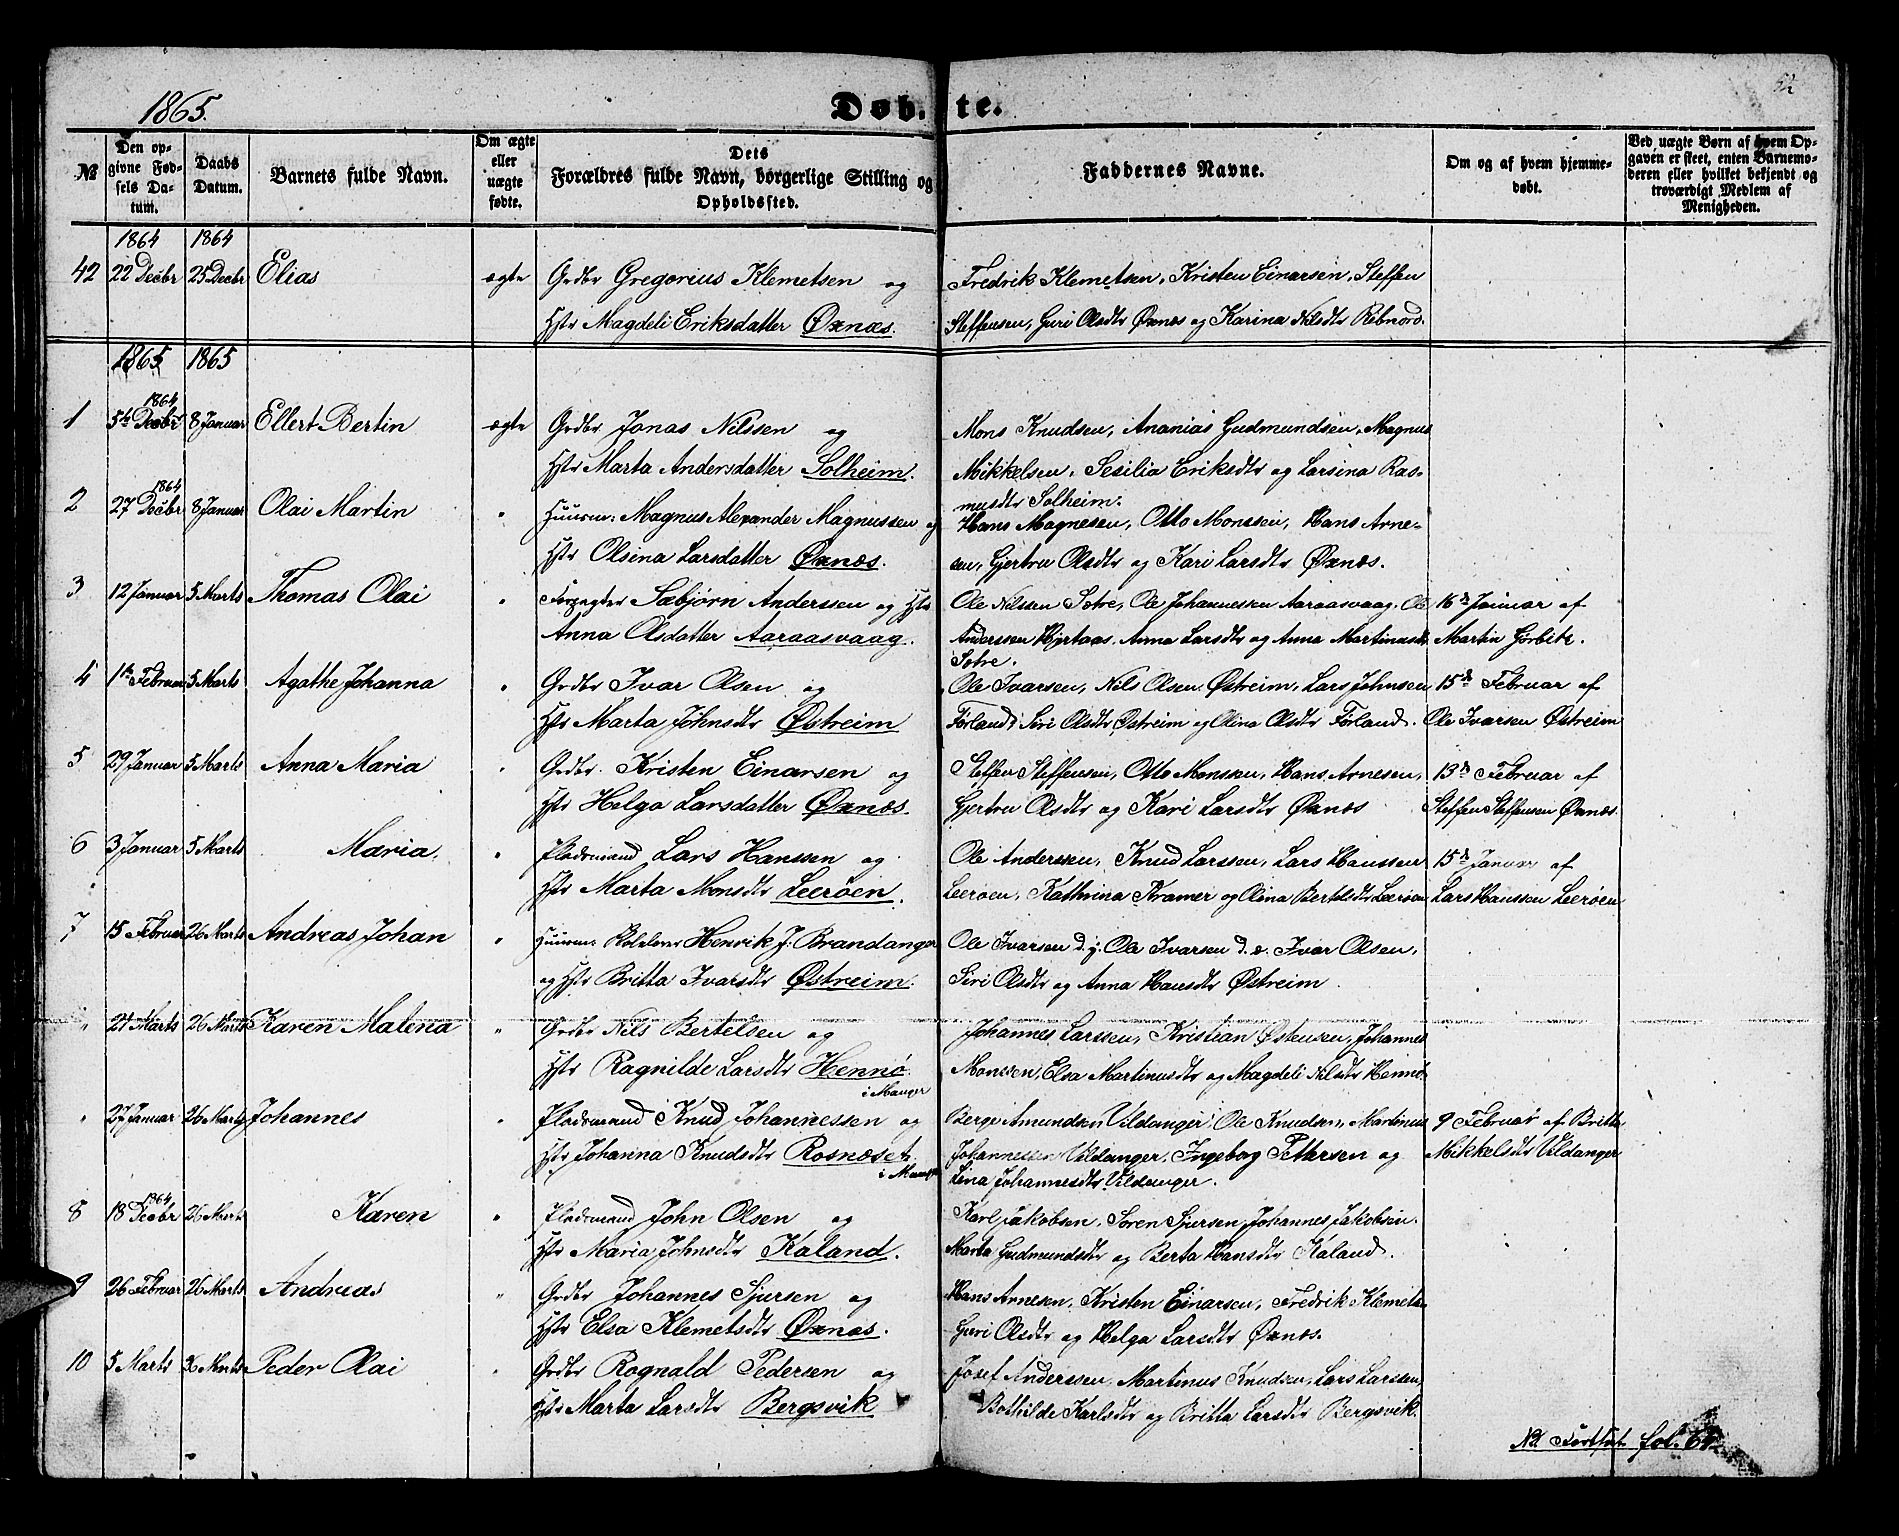 52
1865.
Døb-te.
№
Den opgivne Fødsels Datum.
Daabs Datum.
Barnets fulde Navn.
Om ægte eller uægte fødte.
Dets Forældres fulde Navn, borgerlige Stilling og Opholdssted.
Faddernes Navne.
Om og af hvem hjemmedøbt.
Ved uægte Børn af hvem Opgaven er skeet, enten Barnemoderen eller hvilket bekjendt og troværdigt Medlem af Menigheden.
1864 1864
42 22 Decbr 25 Decbr Elias ægte Grdbr Gregorius Klemetsen og Fredrik Klemetsen, Kristen Einarsen, Steffen
Hstr Magdeli Eriksdatter Øxnæs. Steffensen, Guri Olsdtr Øxnæs og Karina Nilsdtr Rebnord.
1865 1865
1864
1 5te Decbr 8 Januar Ellert Bertin ægte Grdbr Jonas Nilssen og Mons Knudsen, Ananias Gudmundsen, Magnus
Hstr Marta Andersdatter Solheim. Mikkelsen, Sesilia Eriksdtr og Larsina Ras-
musdtr Solheim.
1864
2 27 Decbr 8 Januar Olai Martin " Huusm: Magnus Alexander Magnussen og Hans Magnesen, Otto Monssen, Hans Arne-
Hstr Olsina Larsdatter Øxnæs. sen, Gjertru Olsdtr og Kari Larsdtr Øxnæs.
3 12 Januar 5 Marts Thomas Olai " Forpagter Sæbjørn Anderssen og Hstr Ole Nilssen Sotre, Ole Johannessen Aaraasvaag, Ole 16de Januar af
Anna Olsdatter Aaraasvaag. Anderssen Hjertaas, Anna Larsdtr og Anna Martinusdtr Martin Gørbitz.
Sotre.
4 1ste Februar 5 Marts Agathe Johanna " Grdbr Ivar Olsen og Ole Ivarsen, Nils Olsen Østreim, Lars Johnsen 15de Februar af
Hstr Marta Johnsdtr Østreim Førland, Siri Olsdtr Østreim og Olina Olsdtr Førland. Ole Ivarsen Østreim
5 29 Januar 5 Marts Anna Maria " Grdbr. Kristen Einarsen og Steffen Steffensen, Otto Monssen, Hans Arnesen, 13de Februar af
Hstr Helga Larsdatter Øxnæs. Gjertru Olsdtr og Kari Larsdtr Øxnæs Steffen Steffensen Øxnæs.
6 3 Januar 5 Marts Maria. " Pladsmand Lars Hanssen og Ole Anderssen, Knud Larssen, Lars Hanssen 15de Januar af
Hstr Marta Monsdtr Leerøen. Leerøen, Kathrina Kramer og Olina Bertelsdtr Leerøen Lars Hanssen Leerøen
7 15 Februar 26 Marts Andreas Johan " Huusm: Henrik J. Brandanger Ole Ivarsen d.y. Ole Ivarsen d.e. Ivar Olsen,
og Hstr Britta Ivarsdtr Østreim. Siri Olsdtr og Anna Hansdtr Østreim
" 21 Marts 26 Marts Karen Malena " Grdbr Nils Bertelsen og Johannes Larssen, Kristian Østensen, Johannes
Hstr Ragnilde Larsdtr Hennø. Monssen, Elsa Martinusdtr og Magdeli Nilsdtr Hennø.
i Manger
" 27 Januar 26 Marts Johannes " Pladsmand Knud Johannessen og Berge Amundsen Vildanger, Ole Knudsen, Martinus 9 Februar af Britta
Hstr Johanna Knudsdtr Rosnæset. Johannessen Vildanger, Ingeborg Pettersen og Mikkelsdtr Vildanger
i Manger Lina Johannesdtr Vildanger.
1864
8 18 Decbr 26 Marts Karen " Pladsmand John Olsen og Karl Jakobsen, Søren Sjursen, Johannes Jakobsen.
Hstr Maria Johnsdtr Kaland. Marta Gudmundsdtr og Berta Hansdtr Kaland.
9 26 Februar 26 Marts Andreas " Grdbr Johannes Sjursen og Hans Arnesen, Kristen Einarsen, Fredrik Klemets.
Hstr Elsa Klemetsdtr Øxnæs. Guri Olsdtr og Helga Larsdtr Øxnæs.
10 5 Marts 26 Marts Peder Olai " Grdbr Rognald Pedersen og Josef Anderssen, Martinus Knudsen, Lars Larssen,
Hstr Marta Larsdtr Bergsvik Bothilde Karlsdtr og Britta Larsdtr Bergsvik.
NB Fortsat fol.